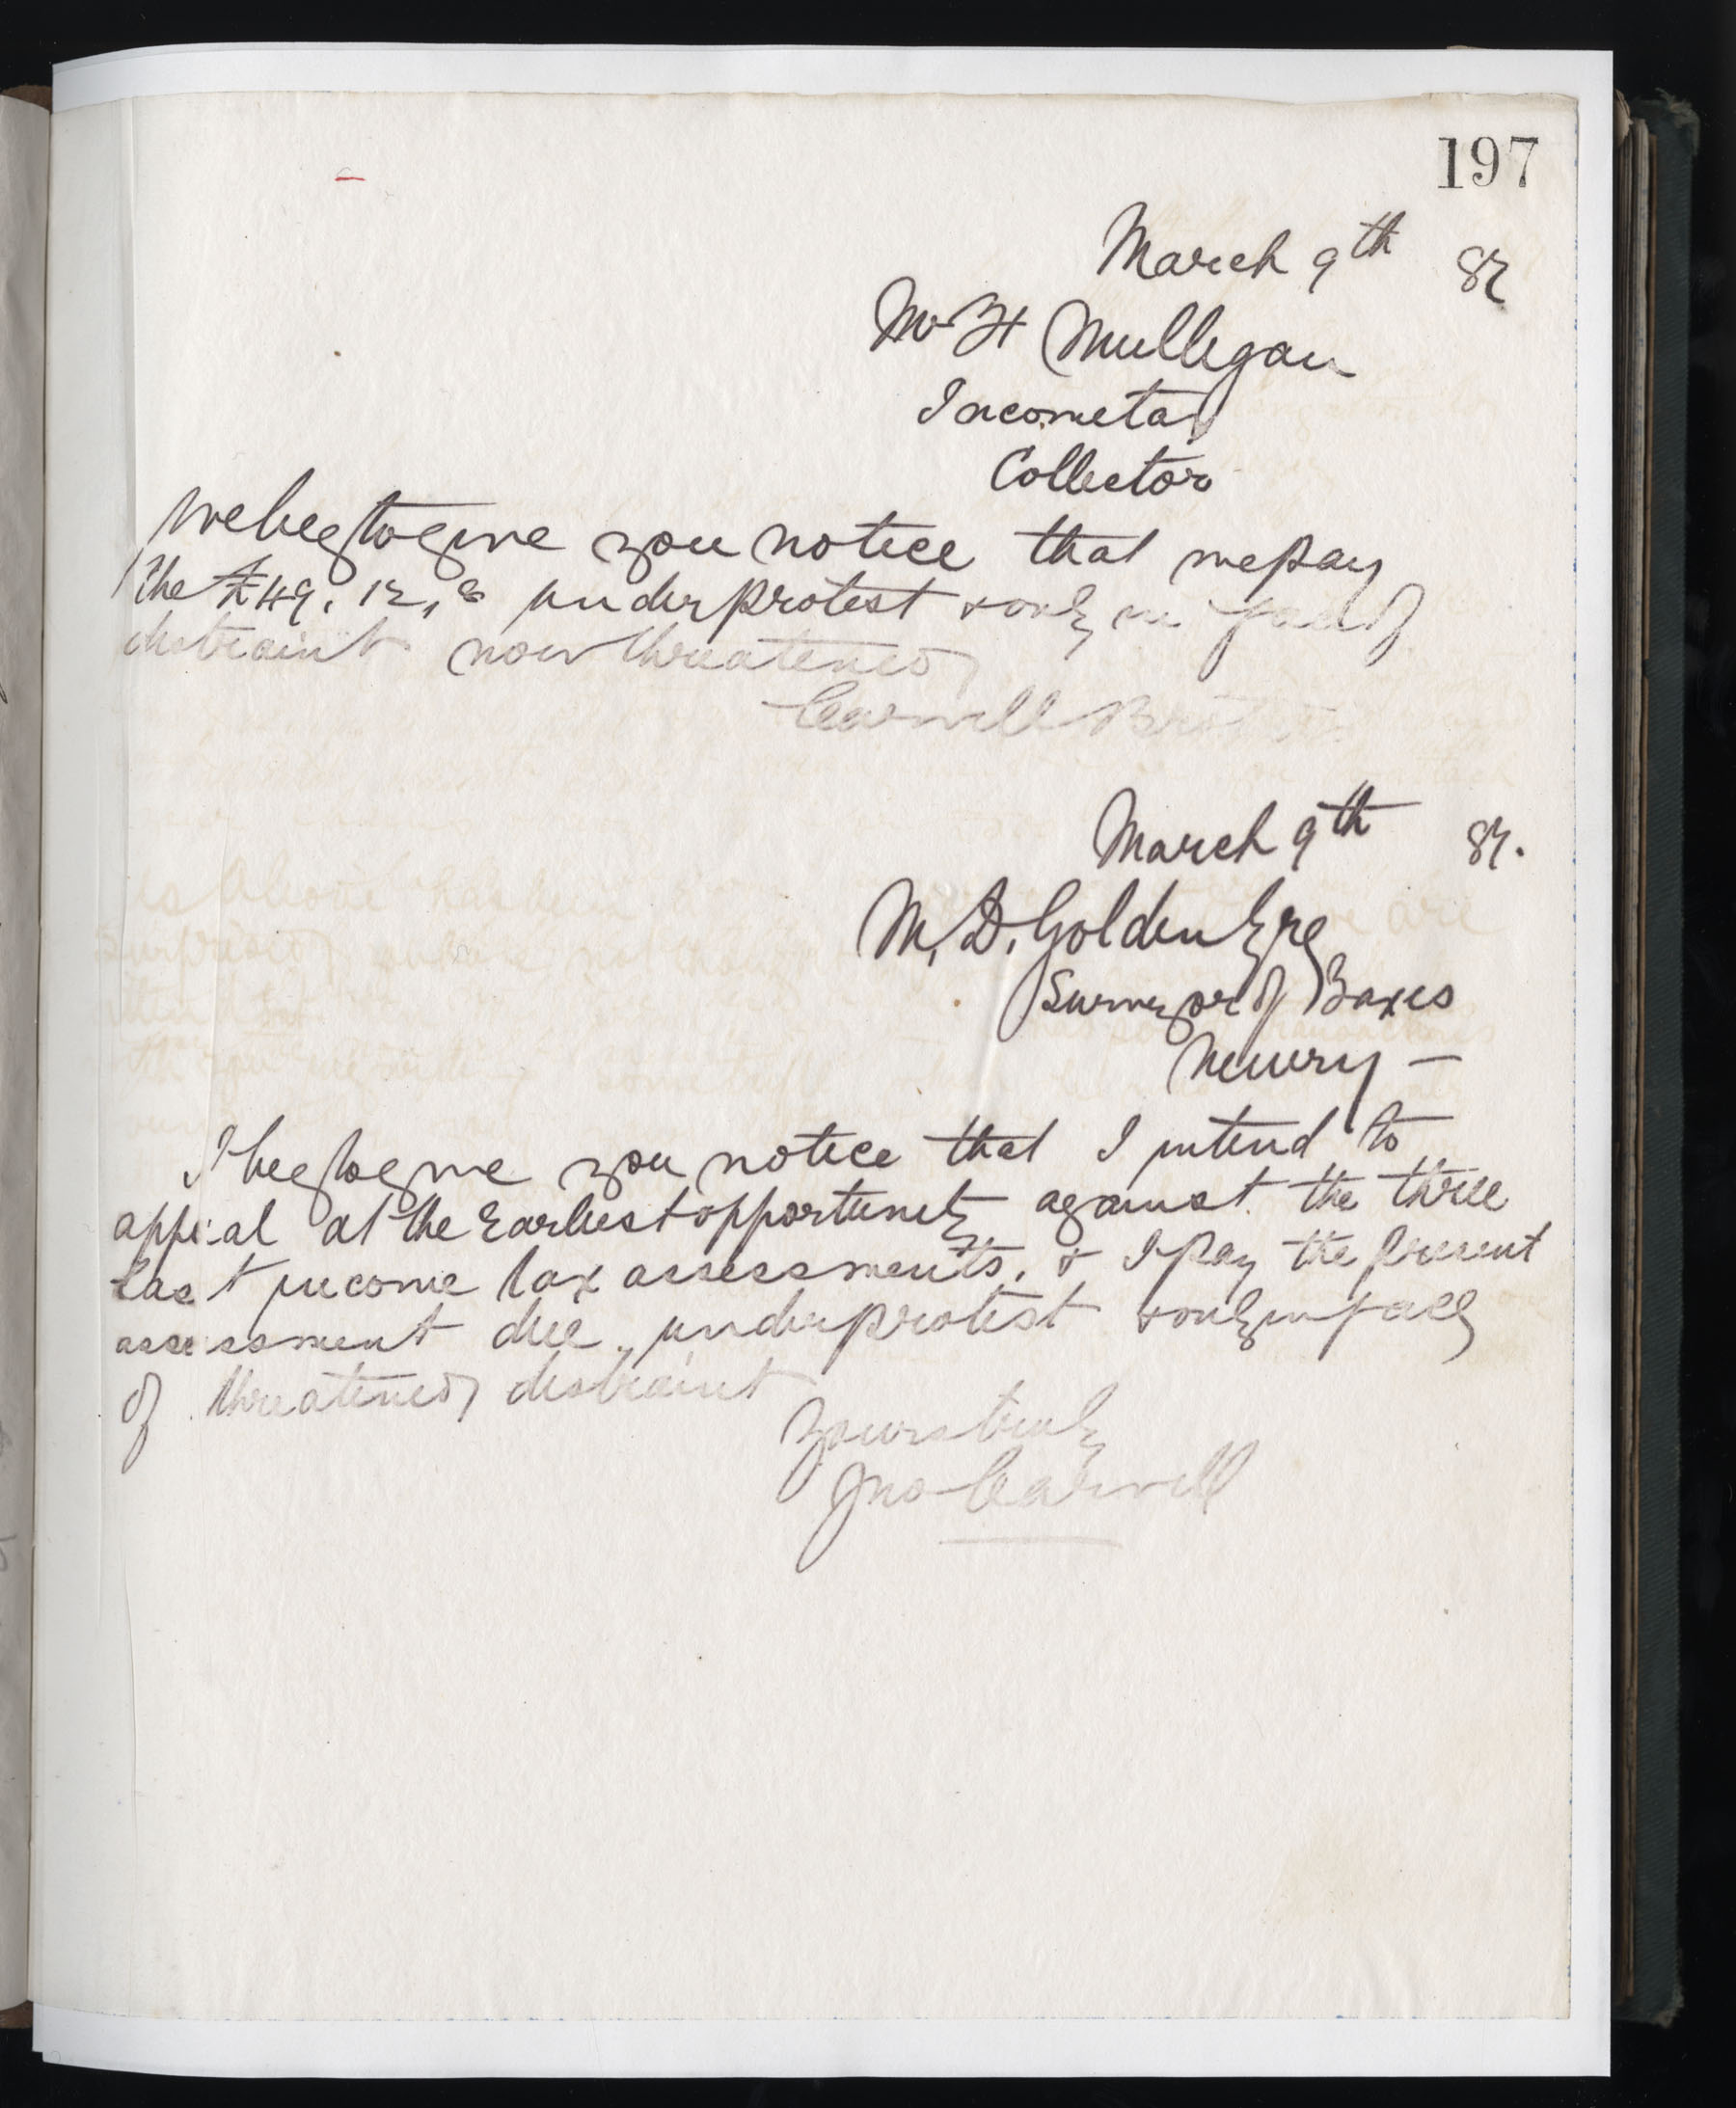 197
March 9th 87
Mr H Mulligan
Incometax
Collector
We beg to give you notice that we pay
the £49. 12, 6 under protest & only in face of
distraint now threatened
Carvill Brothers
March 9th 87.
M. D. Golden Esqre
Surveyor of Taxes
Newry —
I beg to give you notice that I intend to
appeal at the Earliest opportunity against the three
last income tax assessments, & I pay the present
assessment due under protest & only in face
of threatened distraint
Yours truly
Jno Carvill